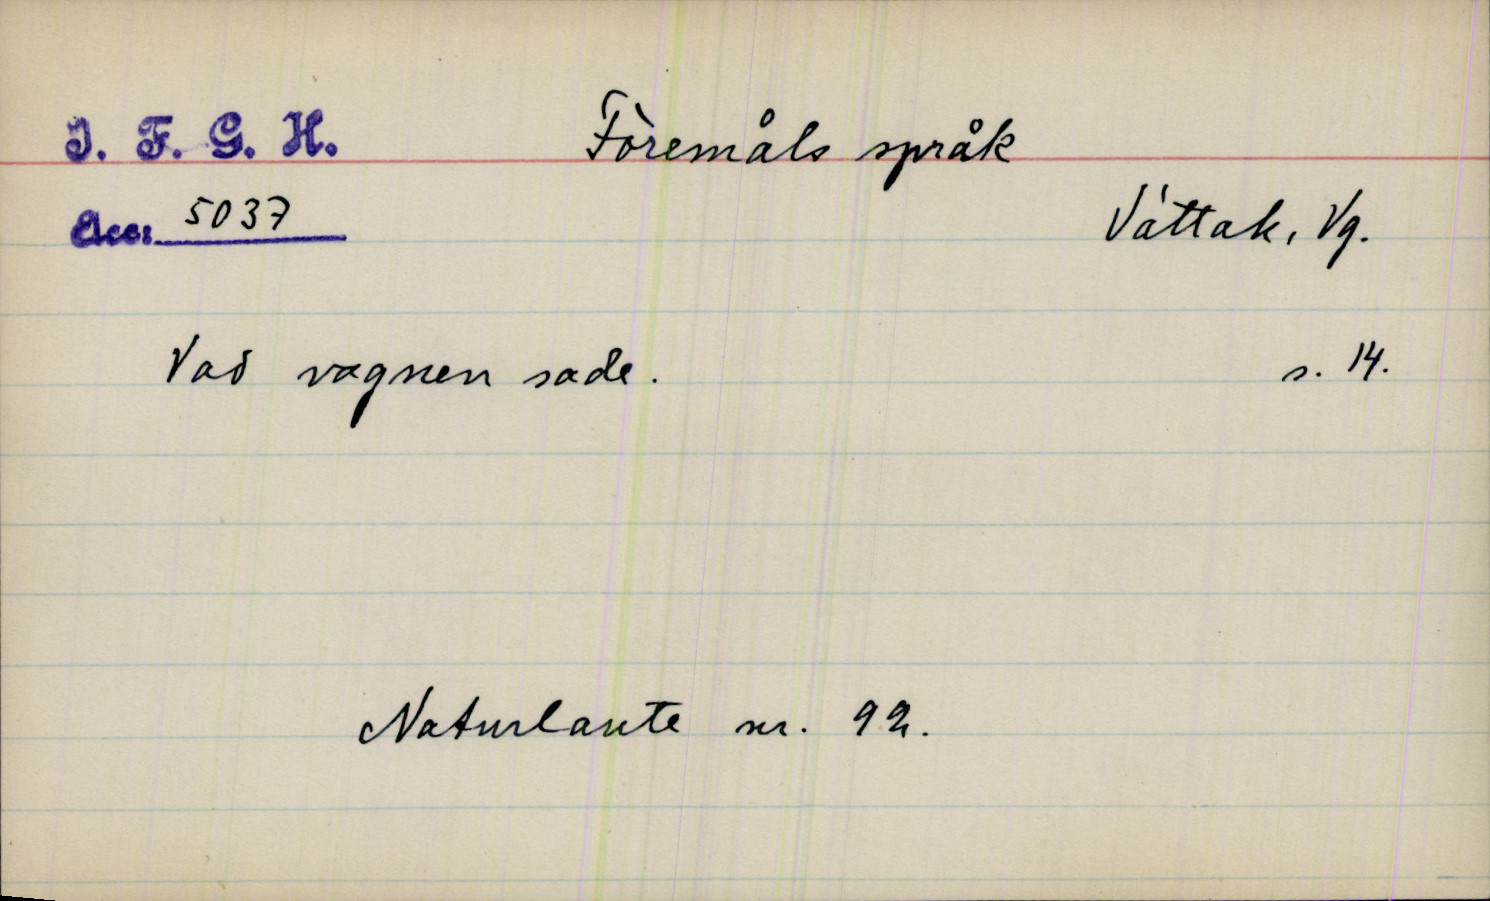 I. F. G. H.
Föremåls språk
Acc: 5037
Våttak, Vg.
Vad vagnen sade.
s. 14.
Naturlaute nr. 92.